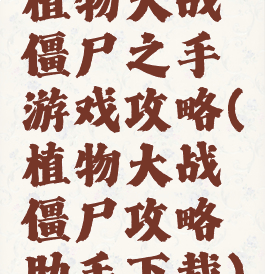 植物大战
僵尸之手
游戏攻略(
植物大战
僵尸攻略
助手下载)